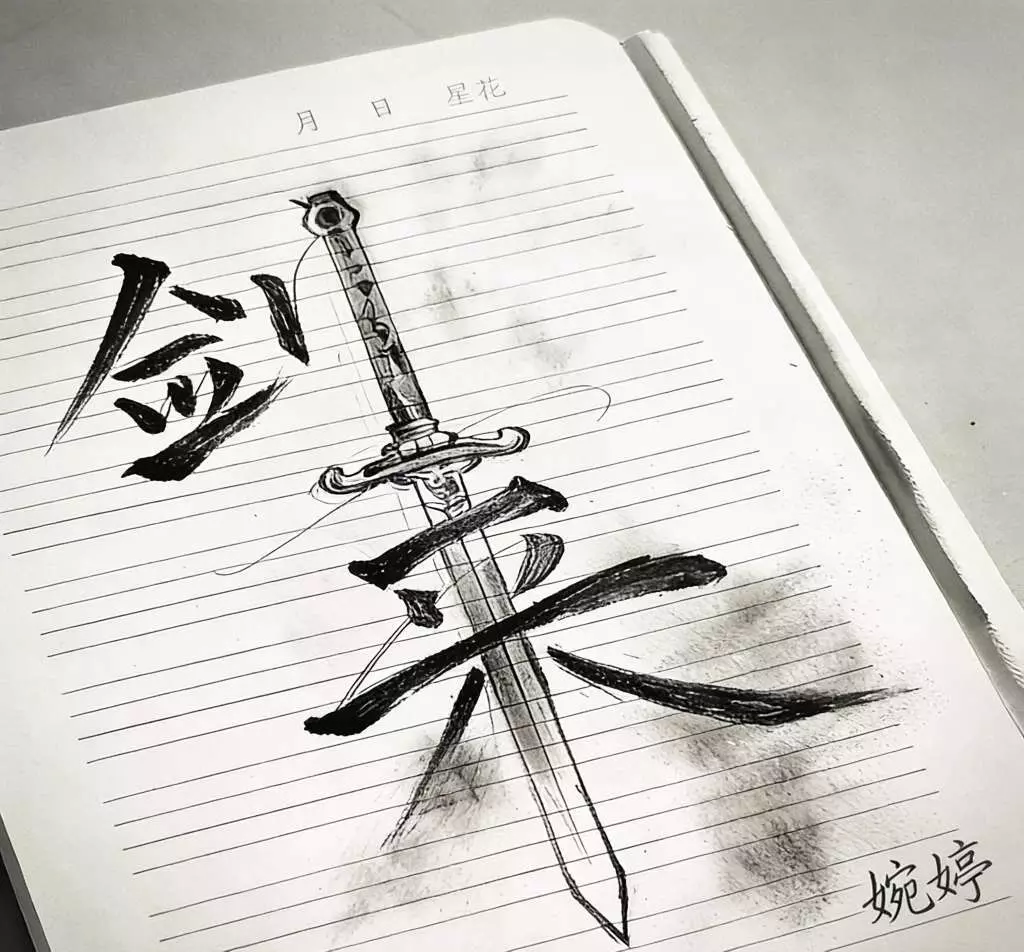 月 日 星花
剑来
婉婷